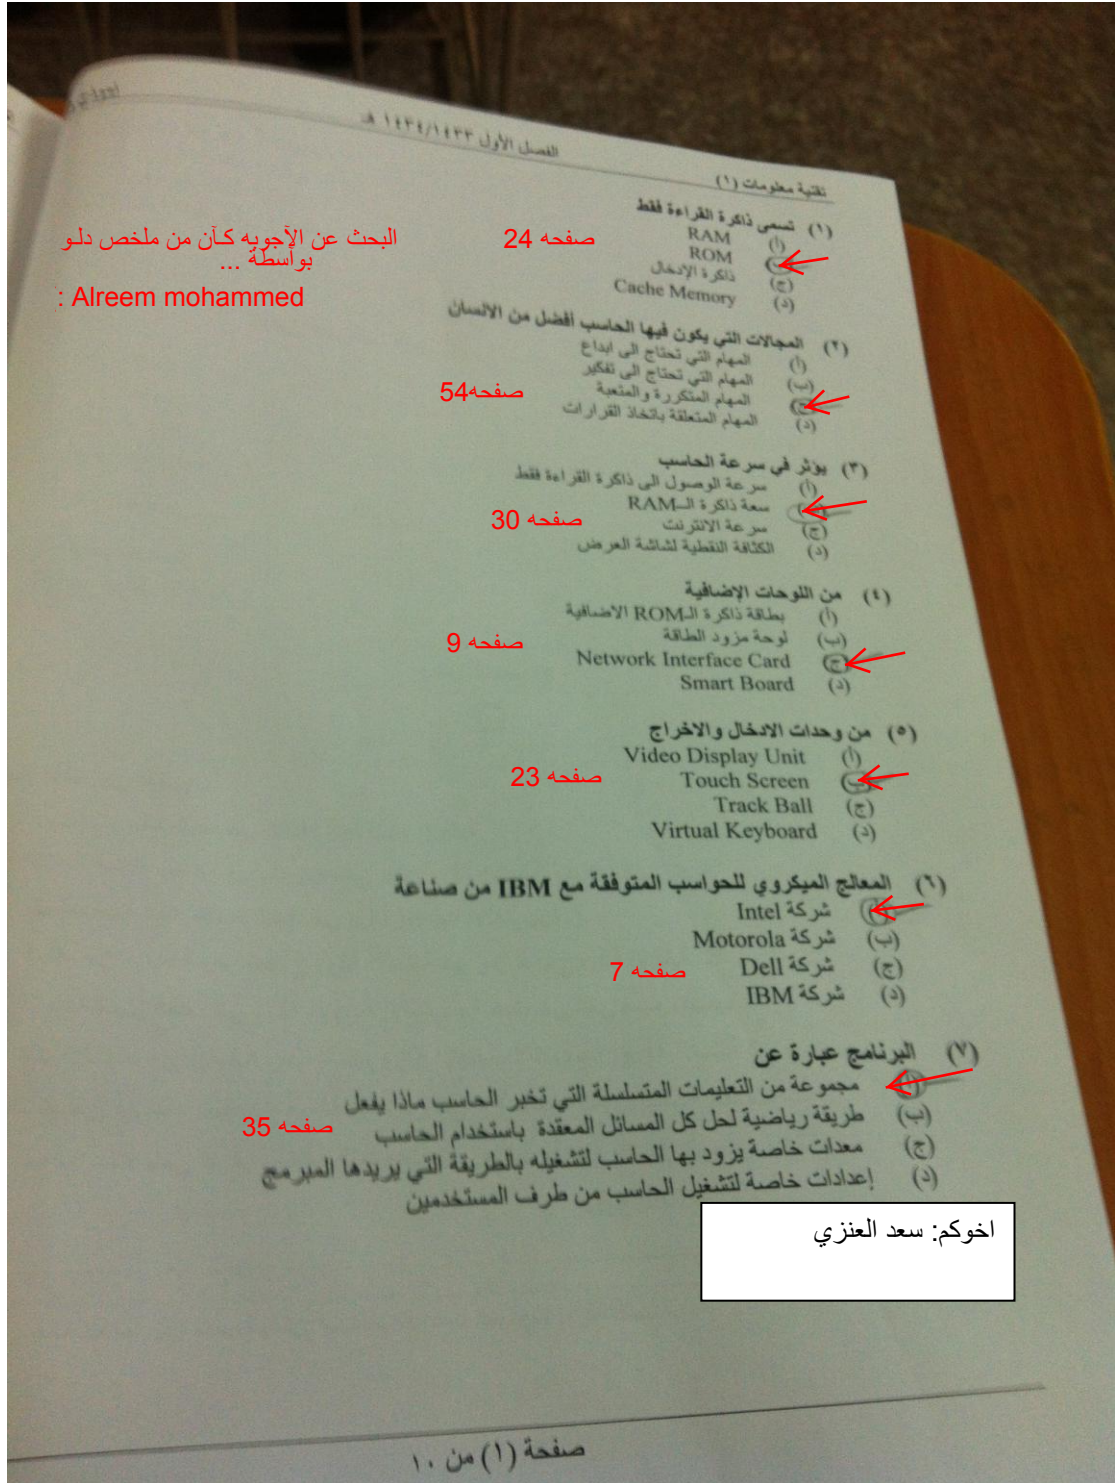 الفصل الأول ١٤٣٤/١٤٣٣ هـ
تقنية معلومات (١)
البحث عن الآجوبه كـآن من ملخص دلـو
بواسطة ...
Alreem mohammed :
(١) تسمى ذاكرة القراءة فقط
(أ) RAM
صفحه 24
(ب) ROM
(ج) ذاكرة الإدخال
(د) Cache Memory
(٢) المجالات التي يكون فيها الحاسب أفضل من الانسان
(أ) المهام التي تحتاج الى ابداع
(ب) المهام التي تحتاج الى تفكير
(ج) المهام المتكررة والمتعبة
صفحه54
(د) المهام المتعلقة باتخاذ القرارات
(٣) يؤثر في سرعة الحاسب
(أ) سرعة الوصول الى ذاكرة القراءة فقط
(ب) سعة ذاكرة الـRAM
صفحه 30
(ج) سرعة الانترنت
(د) الكثافة النقطية لشاشة العرض
(٤) من اللوحات الإضافية
(أ) بطاقة ذاكرة الـROM الاضافية
(ب) لوحة مزود الطاقة
صفحه 9
(ج) Network Interface Card
(د) Smart Board
(٥) من وحدات الادخال والاخراج
(أ) Video Display Unit
(ب) Touch Screen
صفحه 23
(ج) Track Ball
(د) Virtual Keyboard
(٦) المعالج الميكروي للحواسب المتوفقة مع IBM من صناعة
(أ) شركة Intel
(ب) شركة Motorola
(ج) شركة Dell
صفحه 7
(د) شركة IBM
(٧) البرنامج عبارة عن
(أ) مجموعة من التعليمات المتسلسلة التي تخبر الحاسب ماذا يفعل
(ب) طريقة رياضية لحل كل المسائل المعقدة باستخدام الحاسب
صفحه 35
(ج) معدات خاصة يزود بها الحاسب لتشغيله بالطريقة التي يريدها المبرمج
(د) إعدادات خاصة لتشغيل الحاسب من طرف المستخدمين
اخوكم: سعد العنزي
صفحة (١) من ١٠